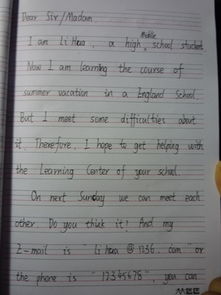 Dear Sir/Madam
I am Li Hua, a high Middle school student
Now I am learning the course of
summer vacation in a England School.
But I meet some difficulties about
it. Therefore, I hope to get helping with
the Learning Center of your school.
On next Sunday we can meet each
other. Do you think it? And my
Z-mail is "li hua @ 1236. com" or
the phone is "12345678", you can